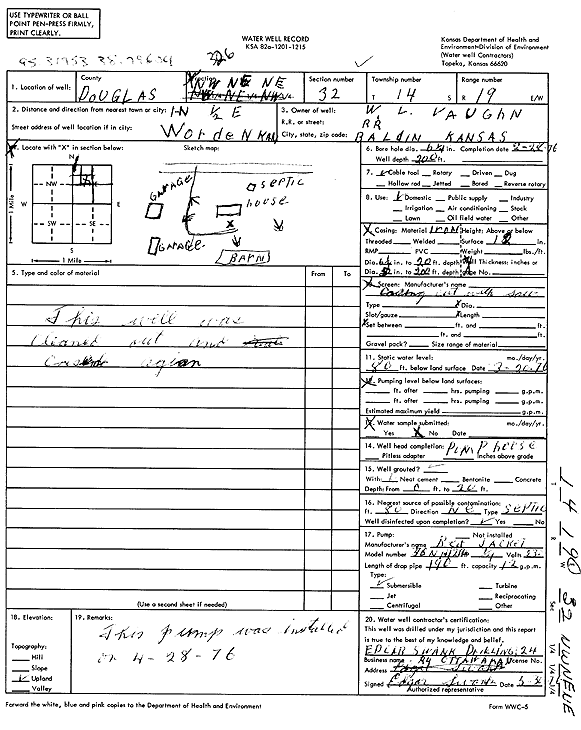 USE TYPEWRITER OR BALL
POINT PEN-PRESS FIRMLY,
PRINT CLEARLY.
WATER WELL RECORD
KSA 82a-1201-1215
Kansas Department of Health and
Environment-Division of Environment
(Water well Contractors)
Topeka, Kansas 66620
226
1. Location of well:
County
DOUGLAS
NW NE NE
Section number
32
Township number
T 14 S
Range number
R 19 E/W
2. Distance and direction from nearest town or city: 1-N ½ E
Street address of well location if in city: Worden Kan
3. Owner of well: W. L. VAUGHN
R.R. or street: RR
City, state, zip code: BALDIN KANSAS
4. Locate with "X" in section below:
Sketch map:
N
NW
NE
W
E
SW
SE
S
1 Mile
1 Mile
GARAGE
SEPTIC
house
X
GARAGE
BARN
5. Type and color of material
From
To
This well was
cleaned out and
6. Bore hole dia. in. Completion date
Well depth 200 ft.
7. Cable tool Rotary Driven Dug
Hollow rod Jetted Bored Reverse rotary
8. Use: Domestic Public supply Industry
Irrigation Air conditioning Stock
Lawn Oil field water Other
9. Casing: Material IRON Height: Above or below
Threaded Welded Surface 12 in.
RMP PVC Weight lbs./ft.
Dia. in. to 20 ft. depth Wall Thickness: inches or
Dia. in. to 200 ft. depth gage No.
10. Screen: Manufacturer's name
Type Dia.
Slot/gauze Length
Set between ft. and ft.
ft. and ft.
Gravel pack? Size range of material
11. Static water level: mo./day/yr.
80 ft. below land surface Date
12. Pumping level below land surfaces:
ft. after hrs. pumping g.p.m.
ft. after hrs. pumping g.p.m.
Estimated maximum yield g.p.m.
13. Water sample submitted: mo./day/yr.
Yes X No Date
14. Well head completion:
Pitless adapter Inches above grade
15. Well grouted?
With: Neat cement Bentonite Concrete
Depth: From 0 ft. to 20 ft.
16. Nearest source of possible contamination:
ft. 80 Direction NE Type SEPTIC
Well disinfected upon completion? Yes No
17. Pump: Not installed
Manufacturer's name Red JACKET
Model number Volts
Length of drop pipe 190 ft. capacity 12 g.p.m.
Type:
Submersible Turbine
Jet Reciprocating
Centrifugal Other
(Use a second sheet if needed)
18. Elevation:
Topography:
Hill
Slope
Upland
Valley
19. Remarks:
This pump was installed
on 4-28-76
20. Water well contractor's certification:
This well was drilled under my jurisdiction and this report
is true to the best of my knowledge and belief.
EDGAR SWANK DRILLING 24
Business name R4 OTTAWA License No.
Address
Signed Edgar Swank Date
Authorized representative
Forward the white, blue and pink copies to the Department of Health and Environment
Form WWC-5
T
14
R
19
W
Sec
32
NWNENE
1/4 1/4 1/4